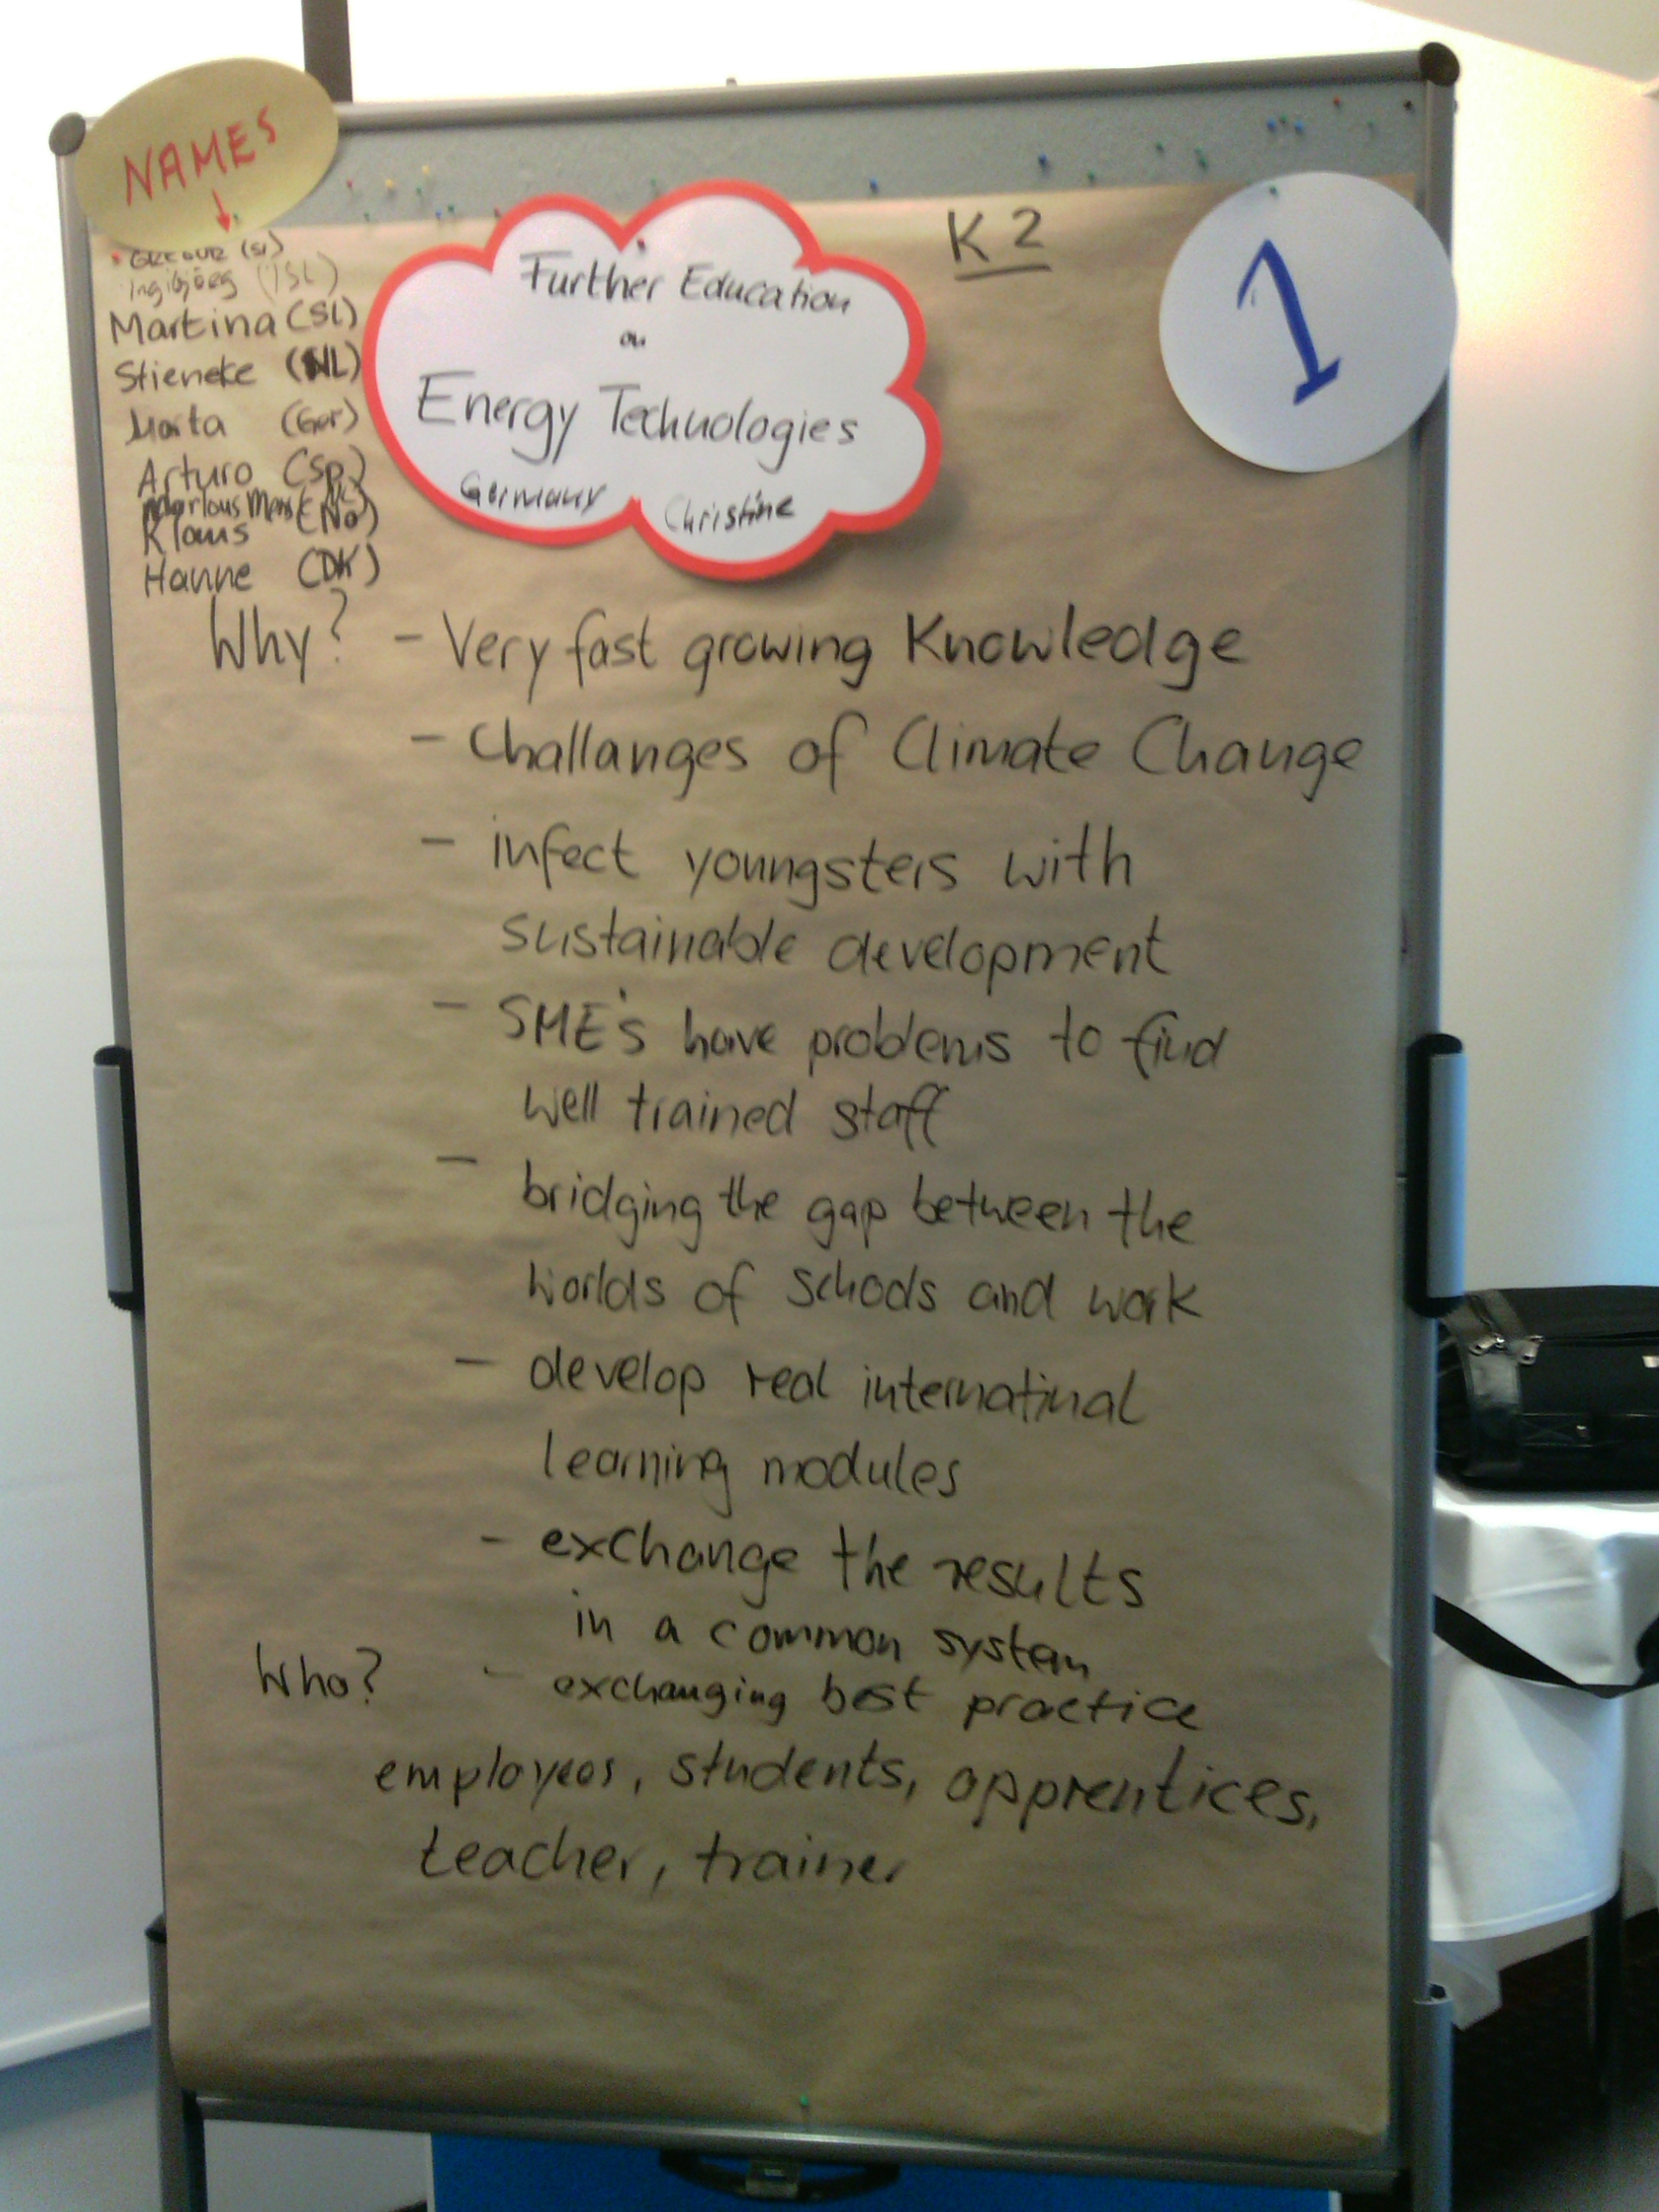 NAMES
K2
1
(SI)
Ingibjörg (ISL)
Martina (SL)
Stieneke (NL)
Marta (Ger)
Arturo (Sp)
Klaus (No)
Hanne (DK)
Further Education
on
Energy Technologies
Germany Christine
Why? - Very fast growing Knowledge
- Challanges of Climate Change
- infect youngsters with
sustainable development
- SME's have problems to find
well trained staff
- bridging the gap between the
worlds of schools and work
- develop real internatinal
learning modules
- exchange the results
in a common system
Who? - exchanging best practice
employees, students, apprentices,
teacher, trainer